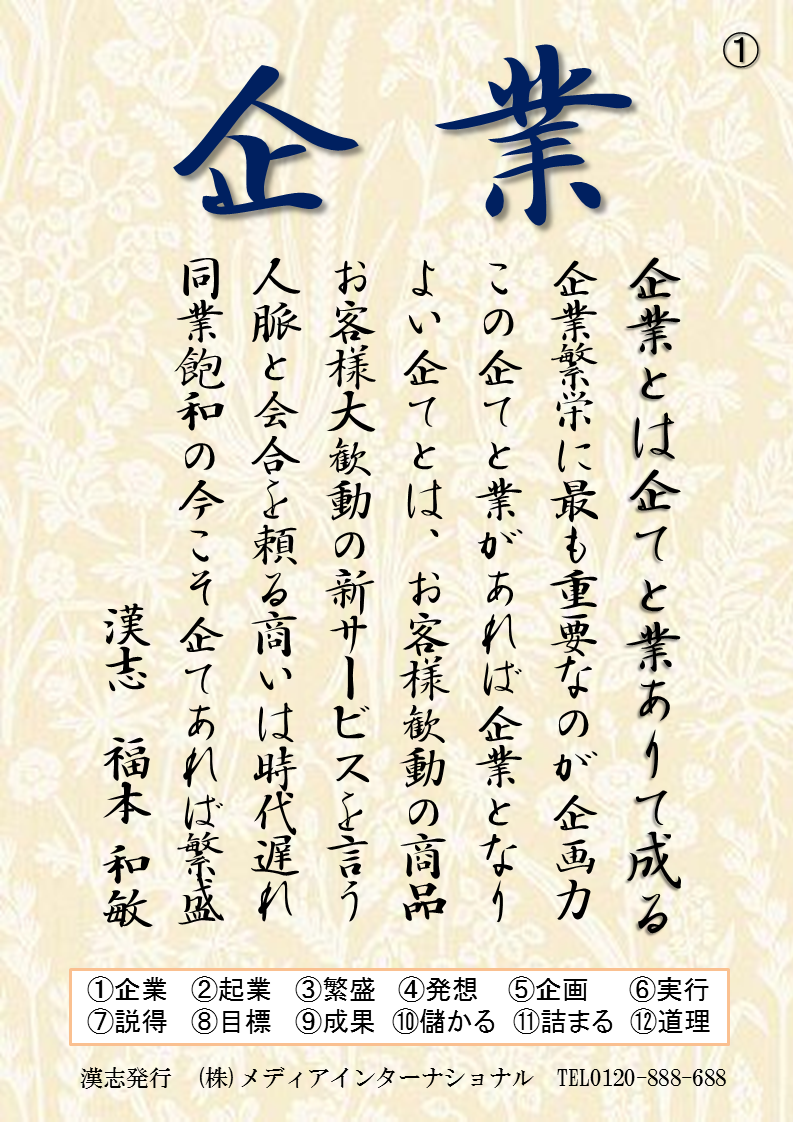 ①
企業
企業とは企てと業ありて成る
企業繁栄に最も重要なのが企画力
この企てと業があれば企業となり
よい企てとは、お客様歓動の商品
お客様大歓動の新サービスを言う
人脈と会合を頼る商いは時代遅れ
同業飽和の今こそ企てあれば繁盛
漢志　福本 和敏
①企業　②起業　③繁盛　④発想　⑤企画　⑥実行
⑦説得　⑧目標　⑨成果　⑩儲かる　⑪詰まる　⑫道理
漢志発行　(株)メディアインターナショナル　TEL0120-888-688